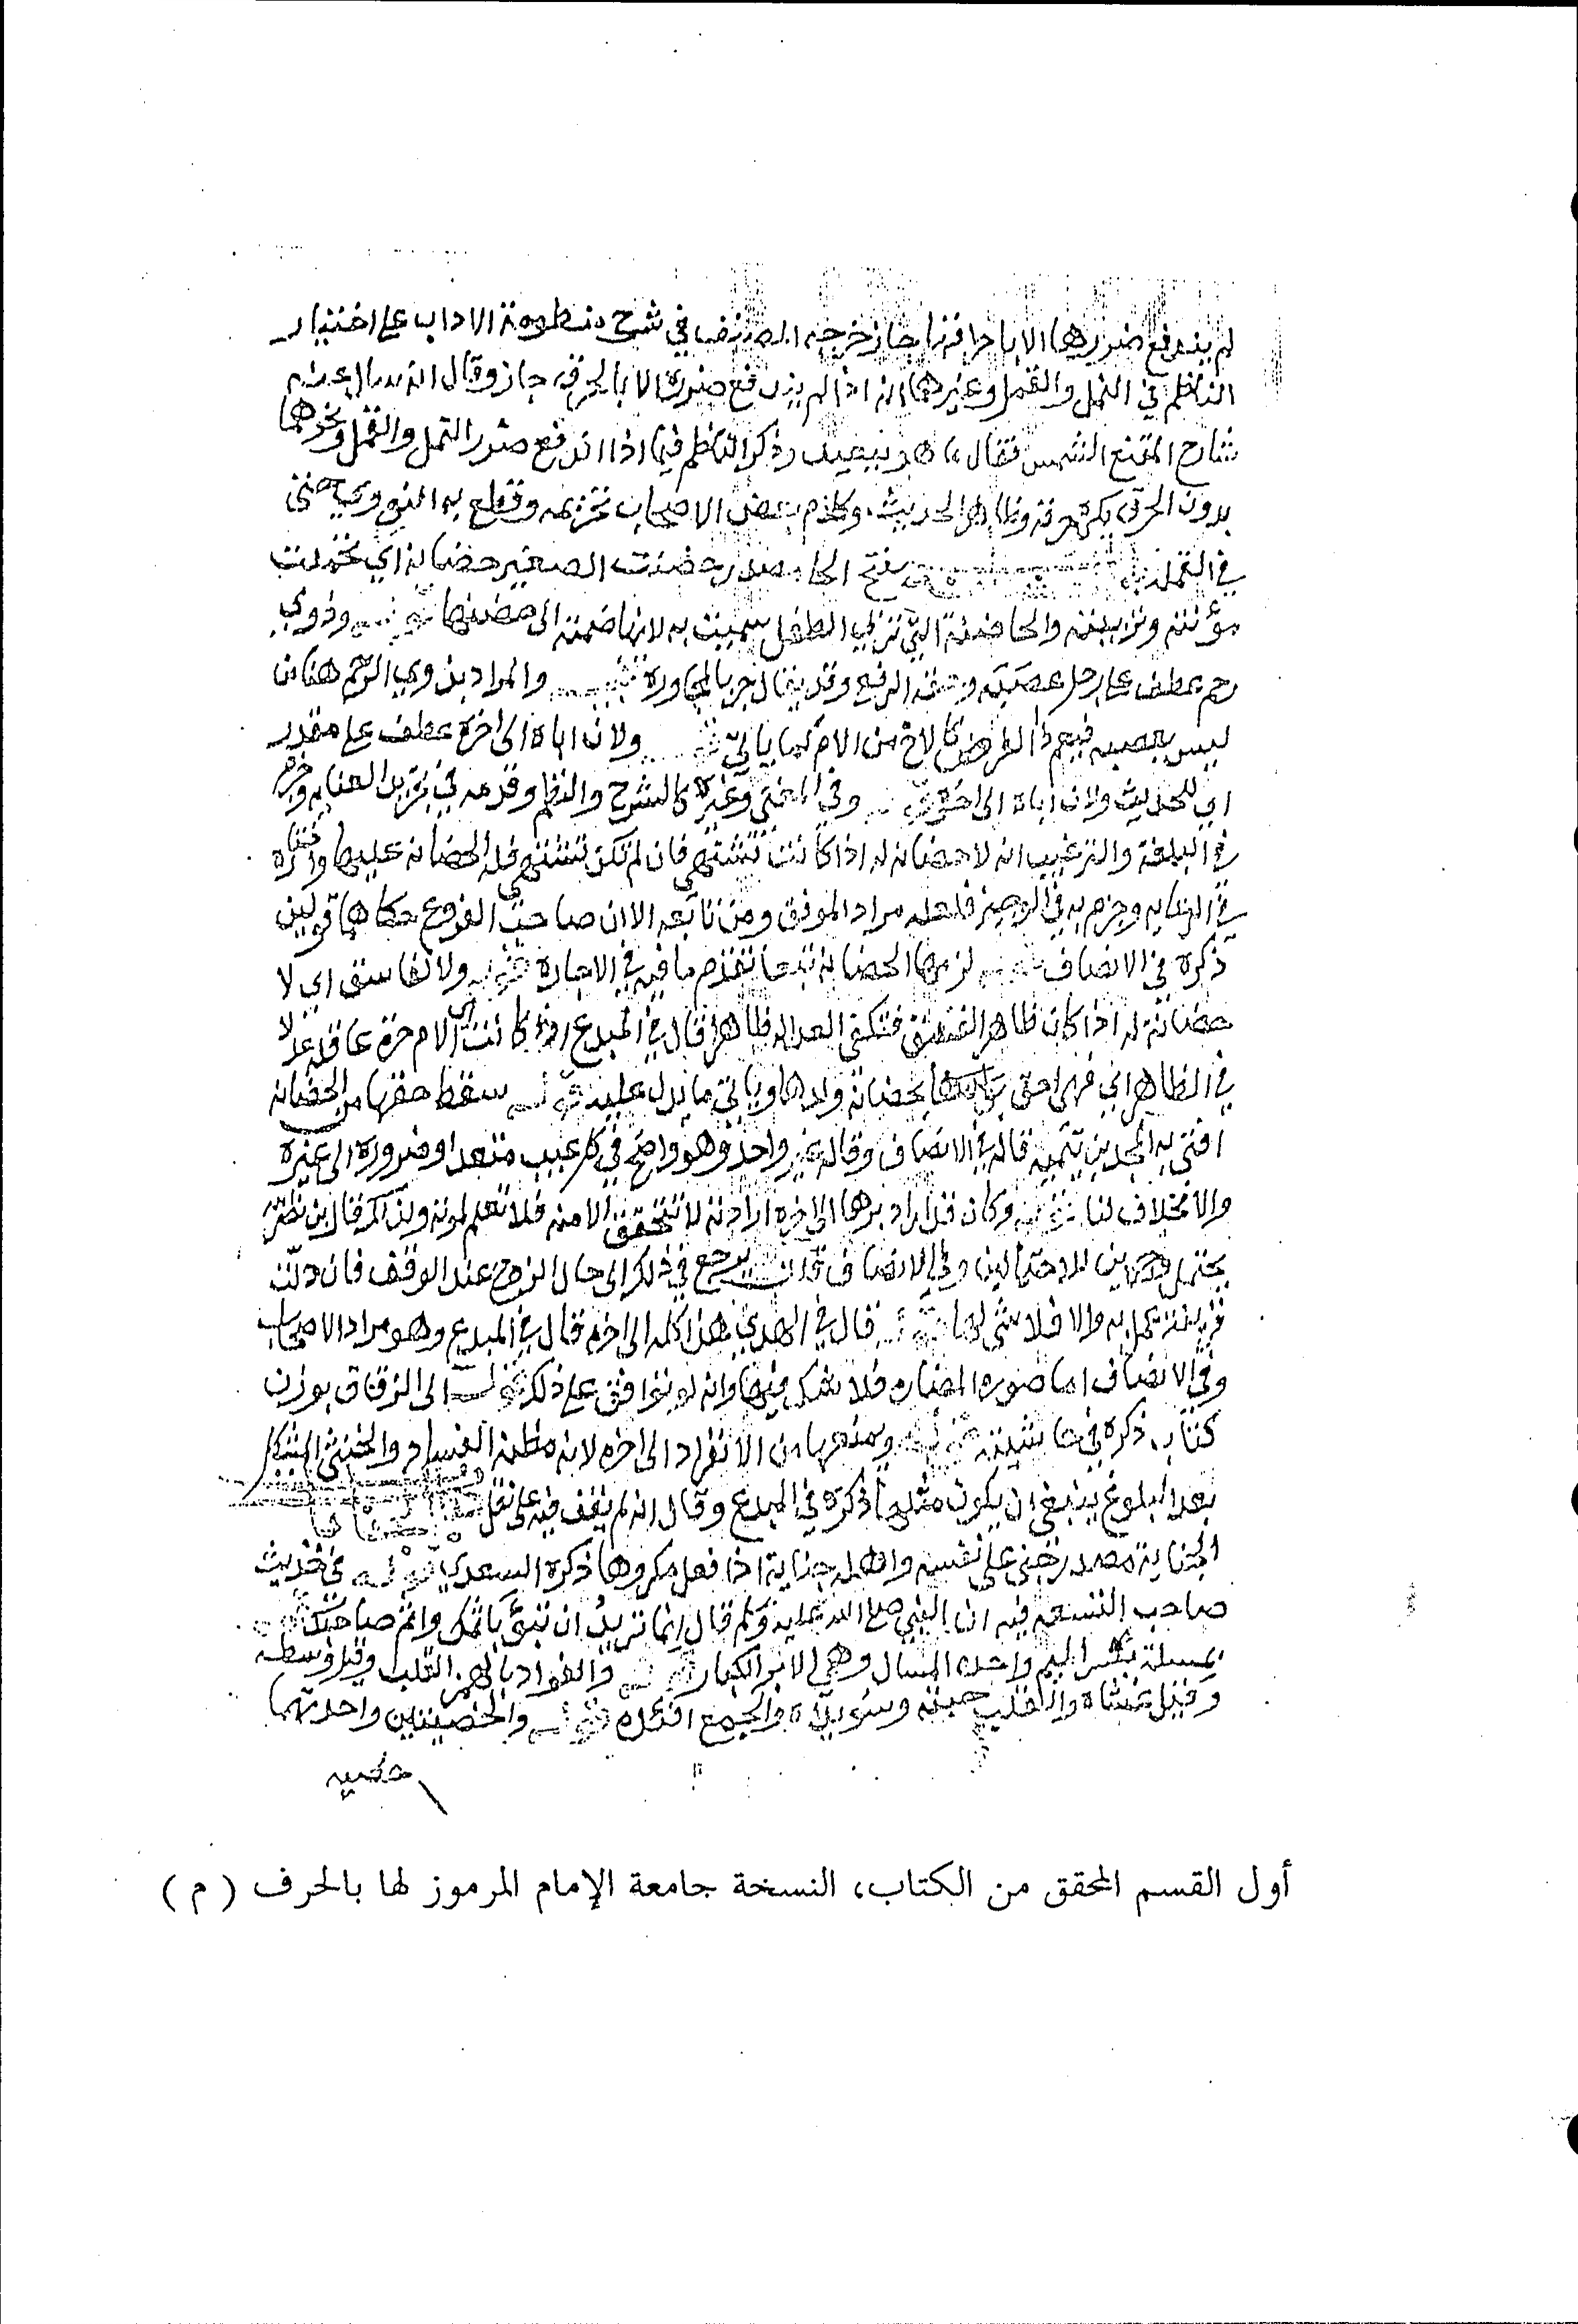 لم يندفع ضررها الا باحراقها جاز خرجه المصنف في شرح منظومة الاداب على اختيار
الناظم في النمل والقمل وغيرهما انه اذا لم يندفع ضرره الا بالحرق جاز وقال انه سال عنه
شارح المقنع الشمس فقال ما هو ببعيد وذكر الناظم فيما اذا اندفع ضرر النمل والقمل ونحوهما
بدون الحرق يكره حرقه وظاهر الحديث وكلام بعض الاصحاب تحريمه وقطع به النووي حتى
في القملة بفتح الحا مصدر حضنت الصغير حضانة اي تحملت
مؤنته وتربيته والحاضنة التي تربي الطفل سميت به لانها ضمته الى حضنها وذوي
رحم عطف على رجل عصبته وحقه الرفع وقد يقال جر بالمجاورة والمراد بذوي الرحم هنا من
ليس بعصبه فيعم ذا الفرض كالاخ من الام كما ياتي ولان اباه الى اخره عطف على مقدر
اي للحديث ولان اباه الى اخره وفي المغني وغيره كالشرح والنظم وقدمه في تجريد العناية وجزم به
في البلغة والترغيب انه لا حضانة له اذا كانت تشتهى فان لم تكن تشتهى فله الحضانة عليها واختاره
في الرعاية وجزم به في الوجيز فلعله مراد الموفق ومن تابعه الا ان صاحب الفروع حكاهما قولين
ذكره في الانصاف لزمها الحضانة تبعا تقدم ما فيه في الاجارة ولا لفاسق اي لا
حضانة له اذا كان ظاهر الفسق فتكفي العدالة ظاهرا قال في المبدع واذا كانت اي الام حرة عاقلة عدلا
في الظاهر اي فهي احق بحضانة ولدها وياتي ما يدل عليه سقط حقها من الحضانة
افتى به المجد بن تيمية قاله في الانصاف وقاله غير واحد وهو واضح في كل عيب متعد او ضرورة الى غيره
والاختلاف لنا وكان قد اراد برها الى اخره ارادته لا تتحقق الا منه فلا تعلم لموته ولذلك قال
يحتمل وجهين للاحتمالين وفي الانصاف قلت يرجع في ذلك الى حال الزوج عند الوقف فان دلت
قرينة عمل به والا فلا شي لها قال في الهدي هذا كله الى اخره قال في المبدع وهو مراد الاصحاب
وفي الانصاف اما صورة المضارة فلا شك فيها وانه لا يوافق على ذلك الى الزقاق بوزن
كتاب ذكره في حاشيته ويمنعها من الانفراد الى اخره لانه مظنة الفساد والخنثى المشكل
بعد البلوغ ينبغي ان يكون مثلها ذكره في المبدع وقال انه لم يقف فيه على نقل
الجناية مصدر جنى على نفسه واهله جناية اذا فعل مكروها ذكره السعدي في حديث
صاحب النسعة فيه ان النبي صلى الله عليه وسلم قال انما تريد ان تبوء باثمك واثم صاحبك
بمسلة بكسر الميم واحدة المسال وهي الابر الكبار والفواد بالهمز القلب وقيل وسطه
وقيل غشاه والقلب حبته وسويداه والجمع افئدة والخصيتين واحدتهما
خصيه
أول القسم المحقق من الكتاب، النسخة جامعة الإمام المرموز لها بالحرف ( م )